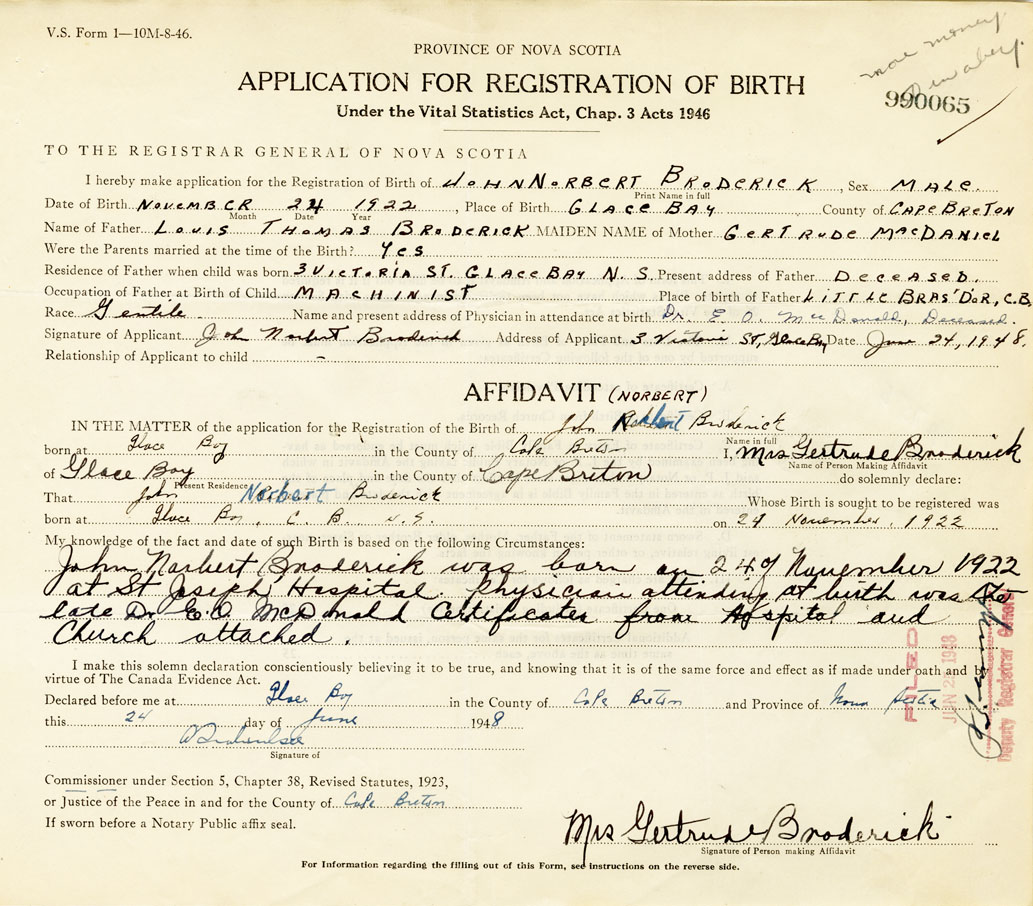 V.S. Form 1—10M-8-46.
PROVINCE OF NOVA SCOTIA
mae money
APPLICATION FOR REGISTRATION OF BIRTH
990065
Under the Vital Statistics Act, Chap. 3 Acts 1946
TO THE REGISTRAR GENERAL OF NOVA SCOTIA
I hereby make application for the Registration of Birth of JOHN NORBERT BRODERICK, Sex MALE.
Print Name in full
Date of Birth NOVEMBER 24 1922, Place of Birth GLACE BAY County of CAPE BRETON
Month Date Year
Name of Father LOUIS THOMAS BRODERICK MAIDEN NAME of Mother GERTRUDE MACDANIEL
Were the Parents married at the time of the Birth? YES
Residence of Father when child was born 3 VICTORIA ST. GLACE BAY N. S. Present address of Father DECEASED.
Occupation of Father at Birth of Child MACHINIST Place of birth of Father LITTLE BRAS' DOR, C.B.
Race Gentile Name and present address of Physician in attendance at birth Dr. E. O. MacDonald, Deceased
Signature of Applicant John Norbert Broderick Address of Applicant 3 Victoria St, Glace Bay Date June 24, 1948.
Relationship of Applicant to child -
AFFIDAVIT (NORBERT)
IN THE MATTER of the application for the Registration of Birth of John Norbert Broderick
Name in full
born at Glace Bay in the County of Cape Breton I, Mrs Gertrude Broderick
Name of Person Making Affidavit
of Glace Bay in the County of Cape Breton do solemnly declare:
Present Residence
That John Norbert Broderick Whose Birth is sought to be registered was
born at Glace Bay, C. B. N.S. on 24 November, 1922
My knowledge of the fact and date of such Birth is based on the following Circumstances:
John Norbert Broderick was born on 24 of November 1922
at St Joseph Hospital. Physician attending at birth was the
late Dr. E.O. McDonald Certificates from Hospital and
Church attached.
I make this solemn declaration conscientiously believing it to be true, and knowing that it is of the same force and effect as if made under oath and by
virtue of The Canada Evidence Act.
Declared before me at Glace Bay in the County of Cape Breton and Province of Nova Scotia
this 24 day of June 1948
Signature of
FILED
JUN 1948
Deputy Registrar General
Commissioner under Section 5, Chapter 38, Revised Statutes, 1923,
or Justice of the Peace in and for the County of Cape Breton
If sworn before a Notary Public affix seal.
Mrs Gertrude Broderick
Signature of Person making Affidavit
For Information regarding the filling out of this Form, see instructions on the reverse side.